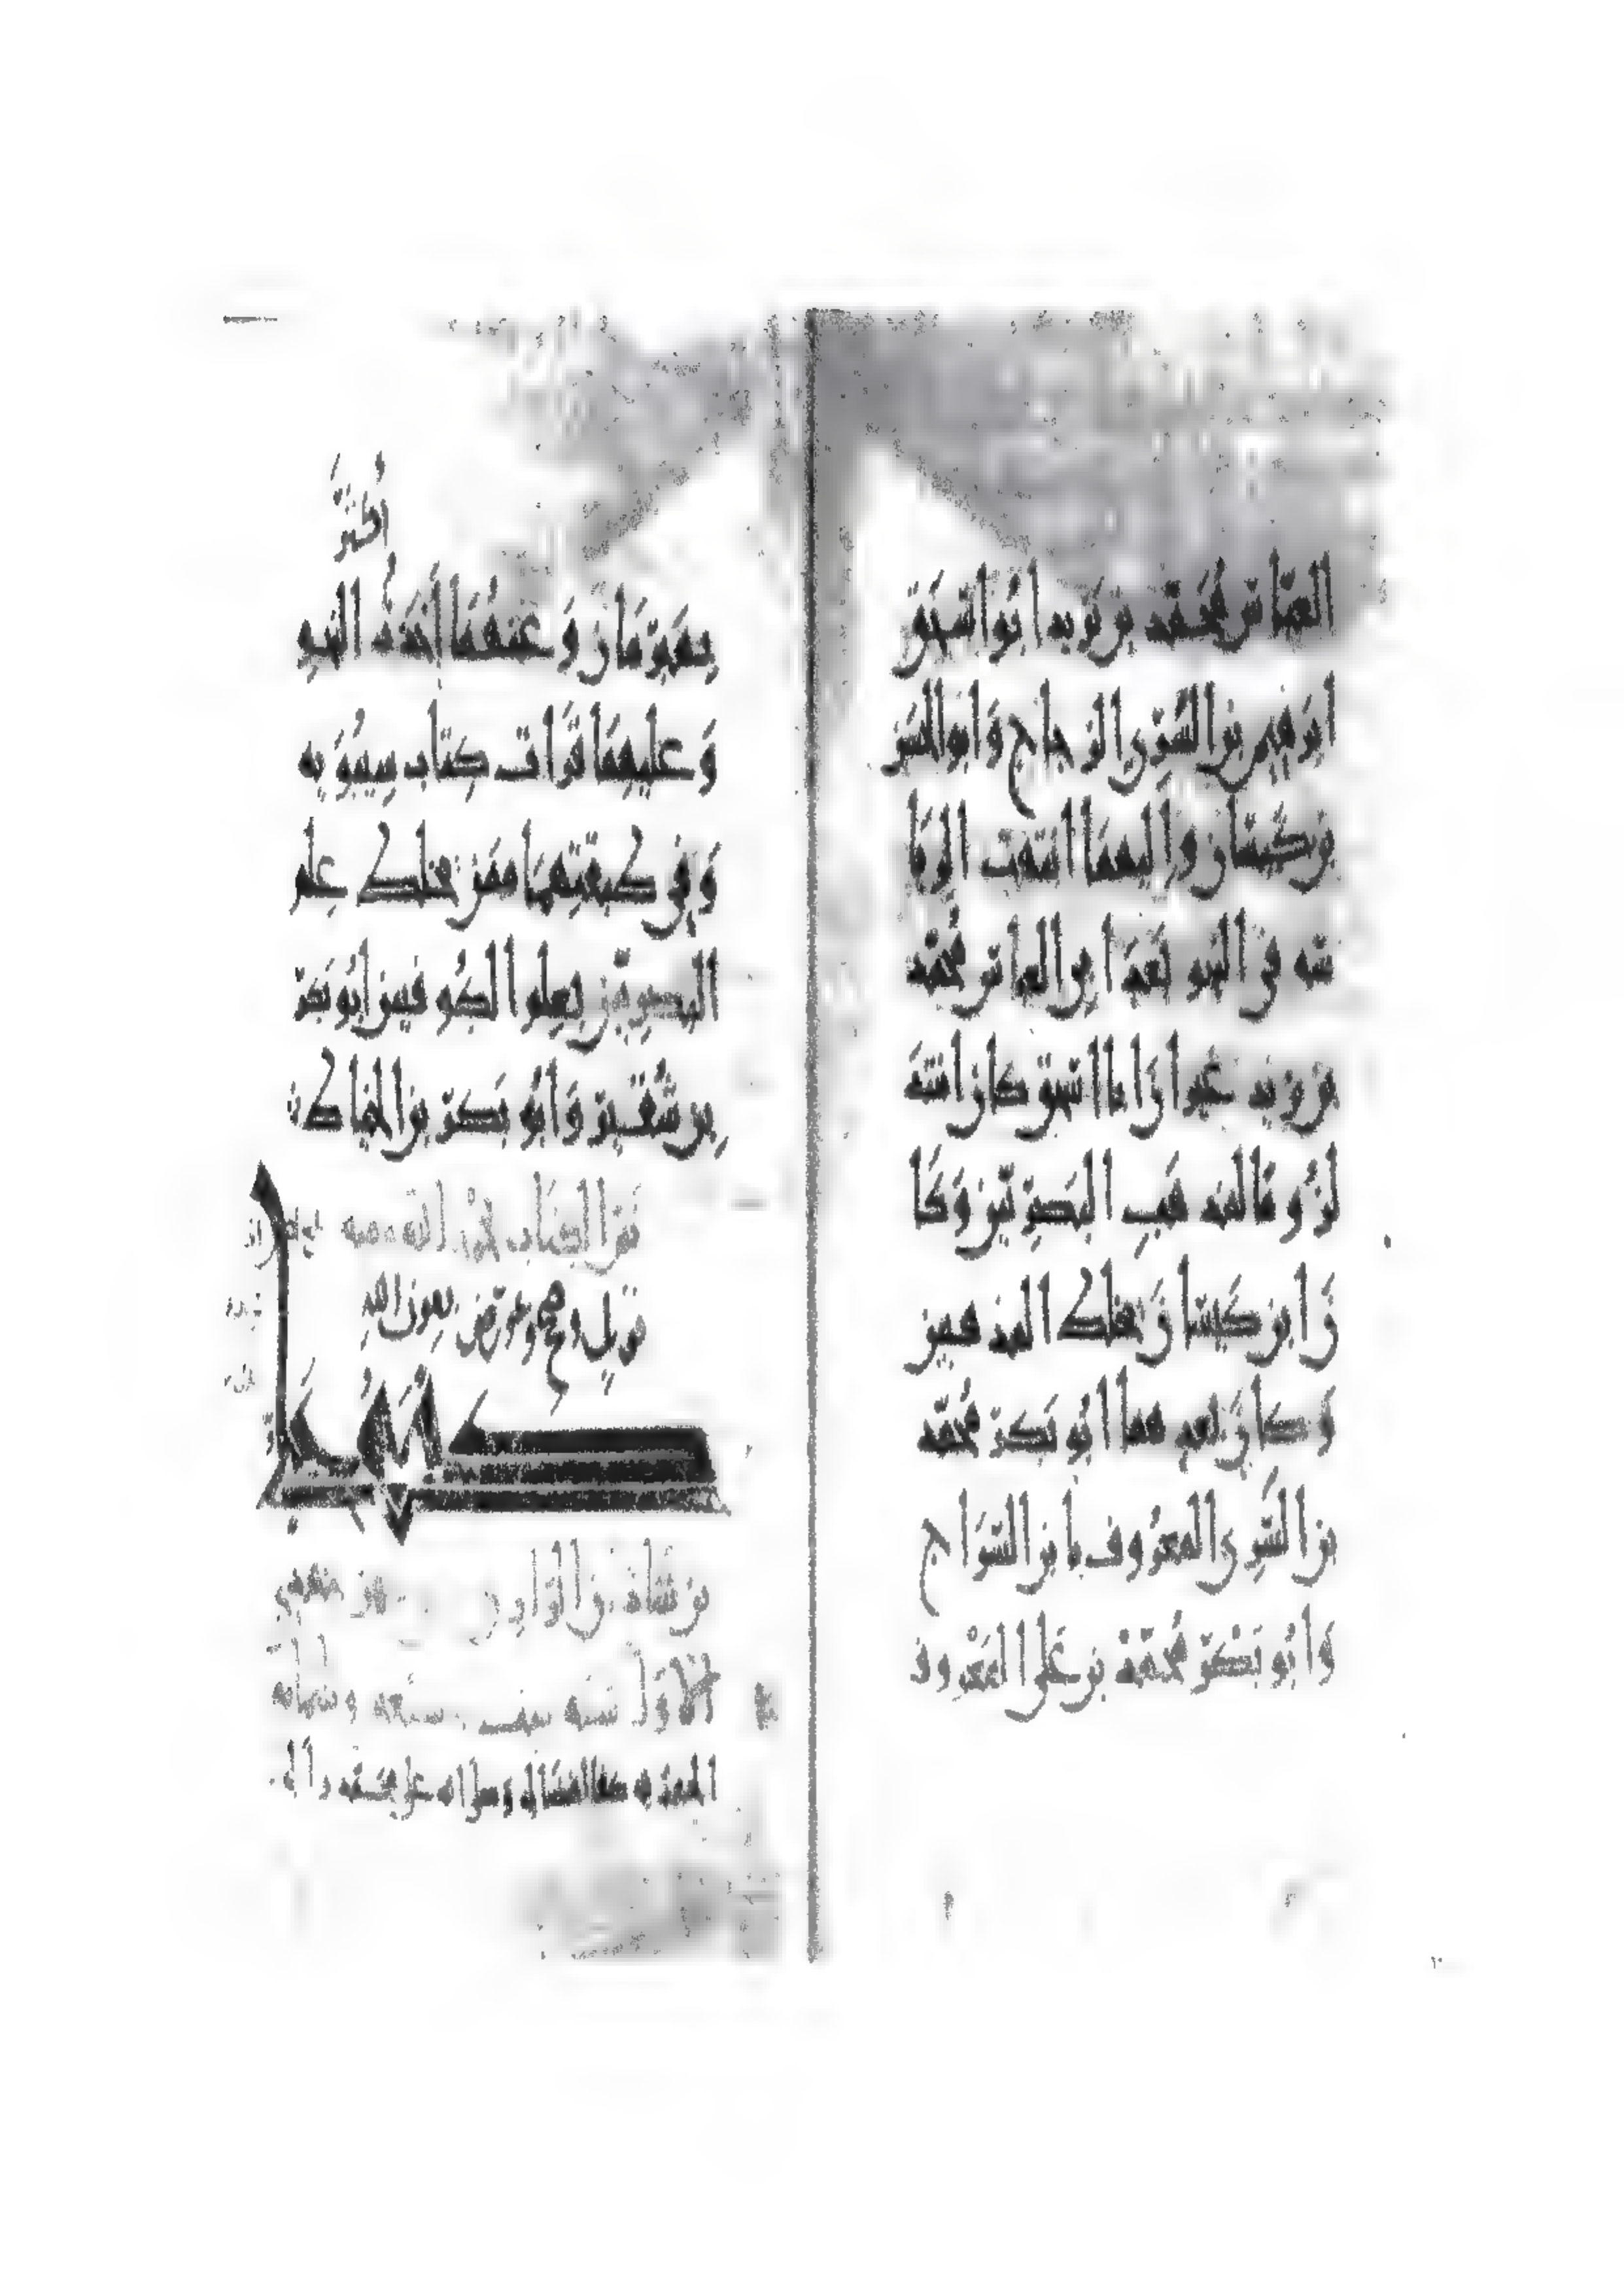 العبّاس محمّد بن يزيد ابُو اسحَق
ابرَهيم بن السَّرِي الزجاج وَابو الحسَن
بن كيسَان وإليهمَا انتهت الرِيَا
سه في النحو بَعدَ ابي العباس محمّد
بن يزيد غير أنّ ابا اسحق كان اشدَّ
لزُومًا لمذهَبِ البَصرِيّين وَكَا
نَ ابن كيسَان يخلط المذهبين
وَكانَ بَعدهما ابُو بَكر محمّد
بن السَّرِي المعرُوف بابن السّرَاج
وَابُو بَكر محمّد بن عَلي المعرُوف
أكثر
بمَبرَمَان وَعنهُمَا أخَذتُ النحو
وَعليهِمَا قرَات كتاب سِيبوَيه
وَفي طبقتِهمَا ممّن خلط عِلم
البصريّين بعلم الكُوفيين ابُو بَكر
بن شُقَير وَابُو بَكر بن الخياط
تمّ الكتاب بحمد الله ومنه
قوبل وصح بعون الله
الأوّل سنة ست وسبعين وثلثمائة
الحمد لله وصلواته على محمّد وآله